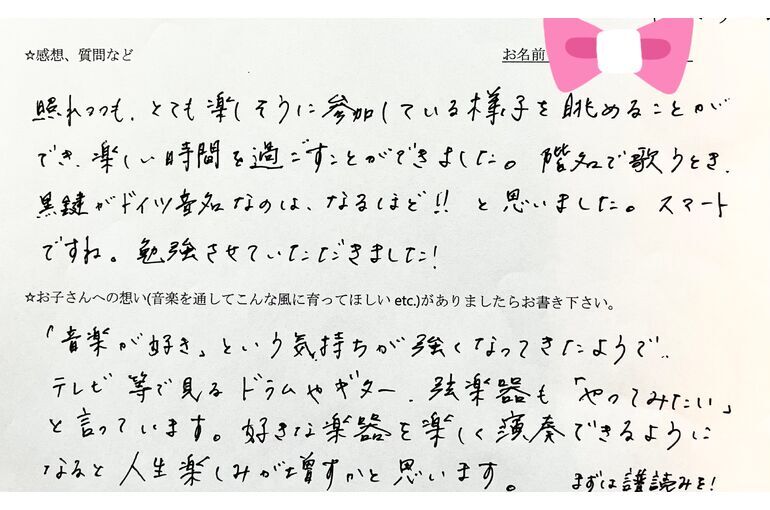 ☆感想、質問など
お名前
照れつつも、とても楽しそうに参加している様子を眺めることが
でき、楽しい時間を過ごすことができました。階名で歌うとき、
黒鍵がドイツ音名なのは、なるほど!! と思いました。スマート
ですね。勉強させていただきました!
☆お子さんへの想い(音楽を通してこんな風に育ってほしい etc.)がありましたらお書き下さい。
「音楽が好き」という気持ちが強くなってきたようで、
テレビ等で見るドラムやギター、弦楽器も「やってみたい」
と言っています。好きな楽器を楽しく演奏できるように
なると人生楽しみが増すかと思います。
まずは譜読みを!